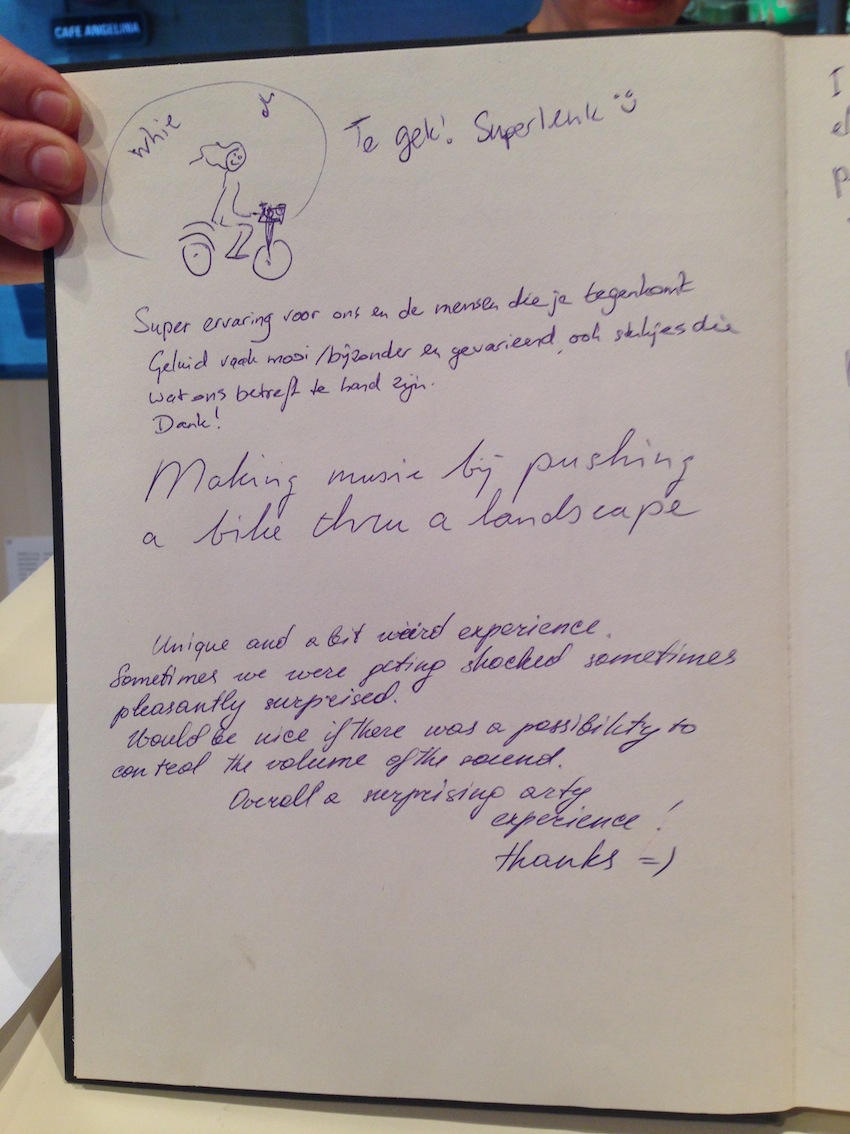 CAFE ANGELINA
whie
Te gek! Superleuk :)
Super ervaring voor ons en de mensen die je tegenkomt
Geluid vaak mooi /bijzonder en gevarieerd, ook stukjes die
wat ons betreft te hard zijn.
Dank!
Making music bij pushing
a bike thru a landscape
Unique and a bit weird experience.
Sometimes we were geting shocked sometimes
pleasantly surprised.
Would be nice if there was a possibility to
control the volume of the sound.
Overall a surprising arty
experience!
thanks =)
I